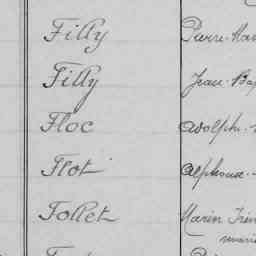 Filly Pierre
Filly Jean
Floc Adolphe
Flot Alphonse
Follet Marin